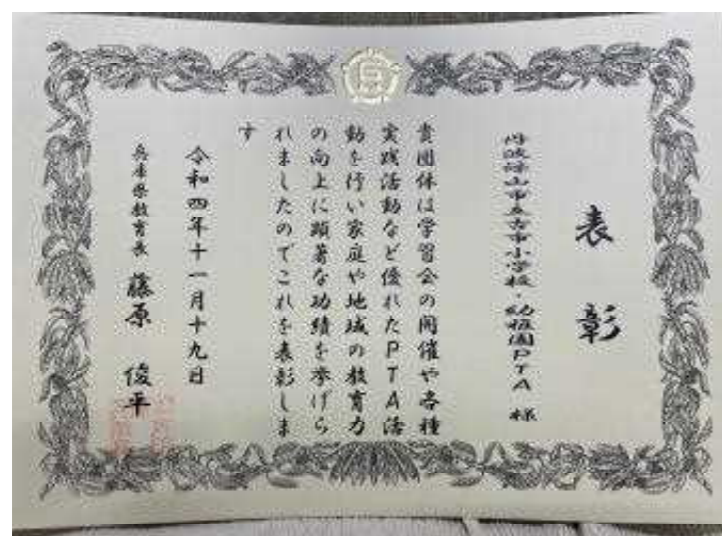 表彰
丹波篠山市立古市小学校・幼稚園PTA 様
貴団体は学習会の開催や各種
実践活動など優れたPTA活
動を行い家庭や地域の教育力
の向上に顕著な功績を挙げら
れましたのでこれを表彰しま
す
令和四年十一月十九日
兵庫県教育長 藤原 俊平